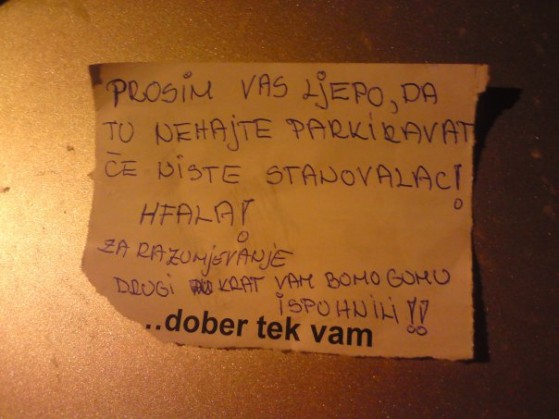 PROSIM VAS LJEPO, DA
TU NEHAJTE PARKIRAVAT
ČE NISTE STANOVALAC!
HFALA!
ZA RAZUMJEVANJE
DRUGI KRAT VAM BOMO GUMU
ISPUHNILI!!
..dober tek vam